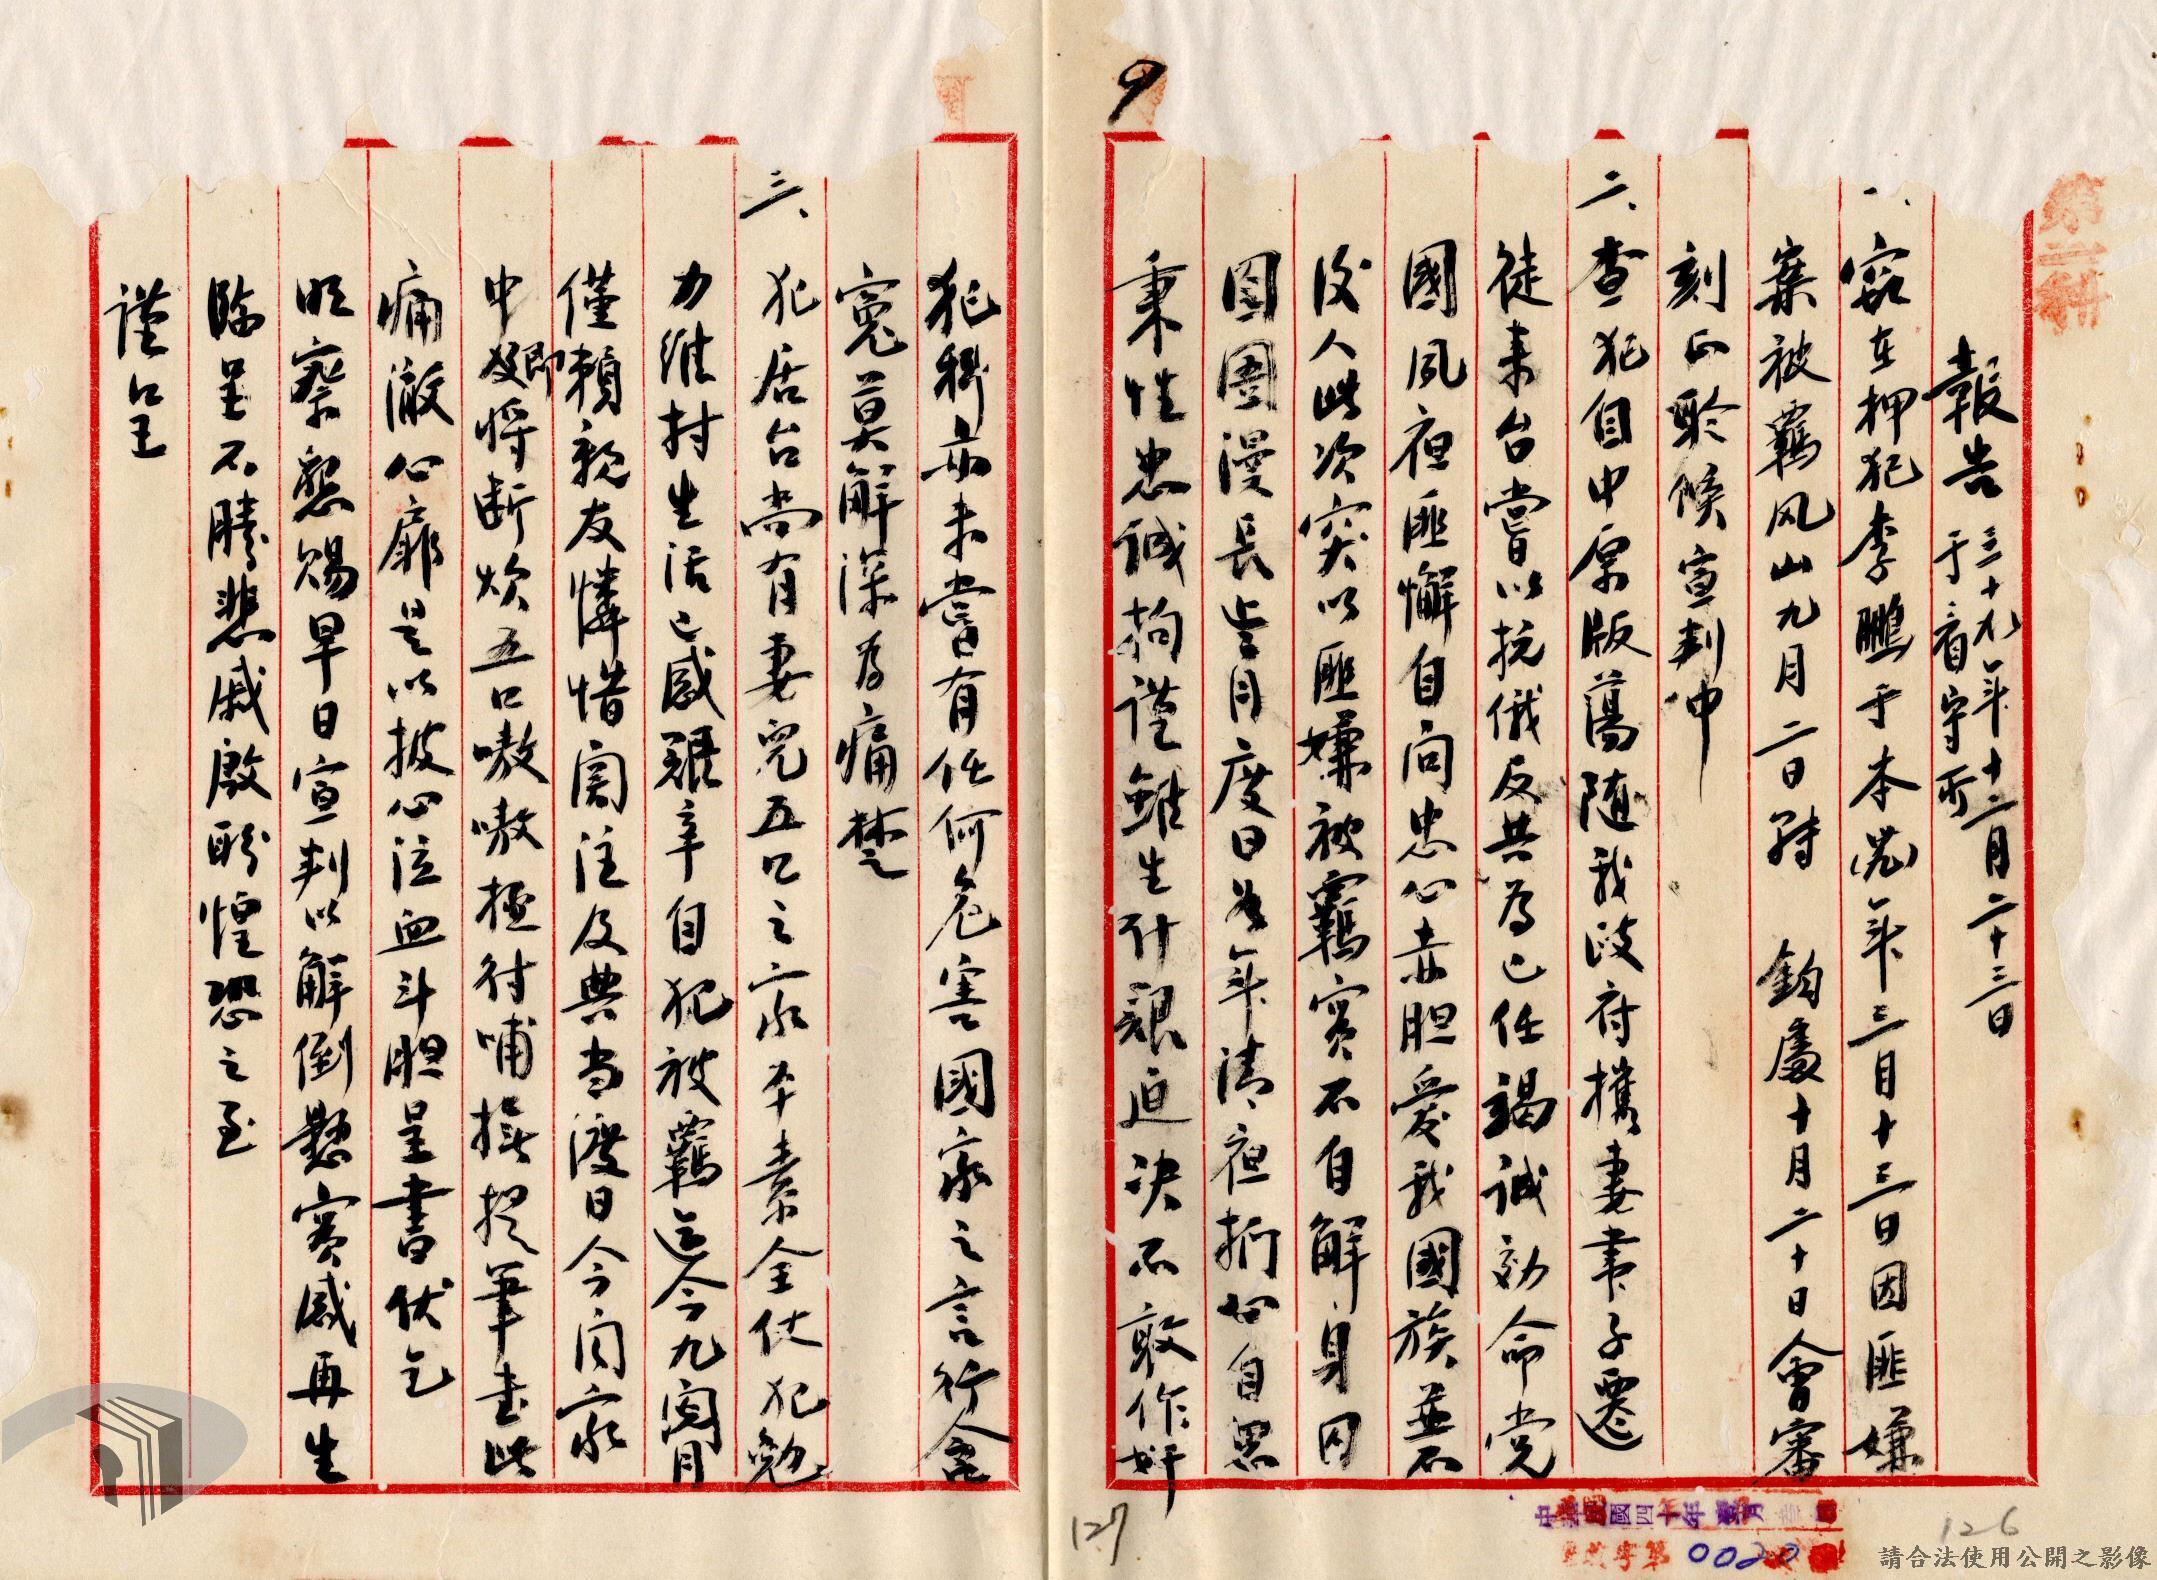 9
第二科
報告 三十九年十二月二十三日
于看守所
一、竊在押犯李鵬于本(卅九)年三月十三日因匪嫌
案被羈风山九月二日解 鈞處十月二十日會審
刻正聆候宣判中
二、查犯自中原版蕩随我政府携妻率子遷
徒來台嘗以抗俄反共為己任竭诚効命党
國夙夜匪懈自问忠心赤胆爱我國族並不
後人此次突以匪嫌被羈實不自解身囚
囹圄漫長歲月度日若年清夜捫心自思
秉性忠诚拘谨雖生计艱迫决不敢作奸
犯科亦未嘗有任何危害國家之言行含
寃莫解深為痛楚
三、犯居台尚有妻兒五口之家平素全仗犯勉
力维持生活已感艱辛自犯被羈迄今九閱月
僅賴親友憐惜関注及典当渡日今闻家
中及即将断炊五口嗷嗷極待哺握提筆書此
痛澈心扉是以披心泣血斗胆呈書伏乞
明察懇赐早日宣判以解倒懸實感再生
臨呈不勝悲戚殷盼惶恐之至
谨呈
127
126
中華民國四十年 月
字第0020號
請合法使用公開之影像